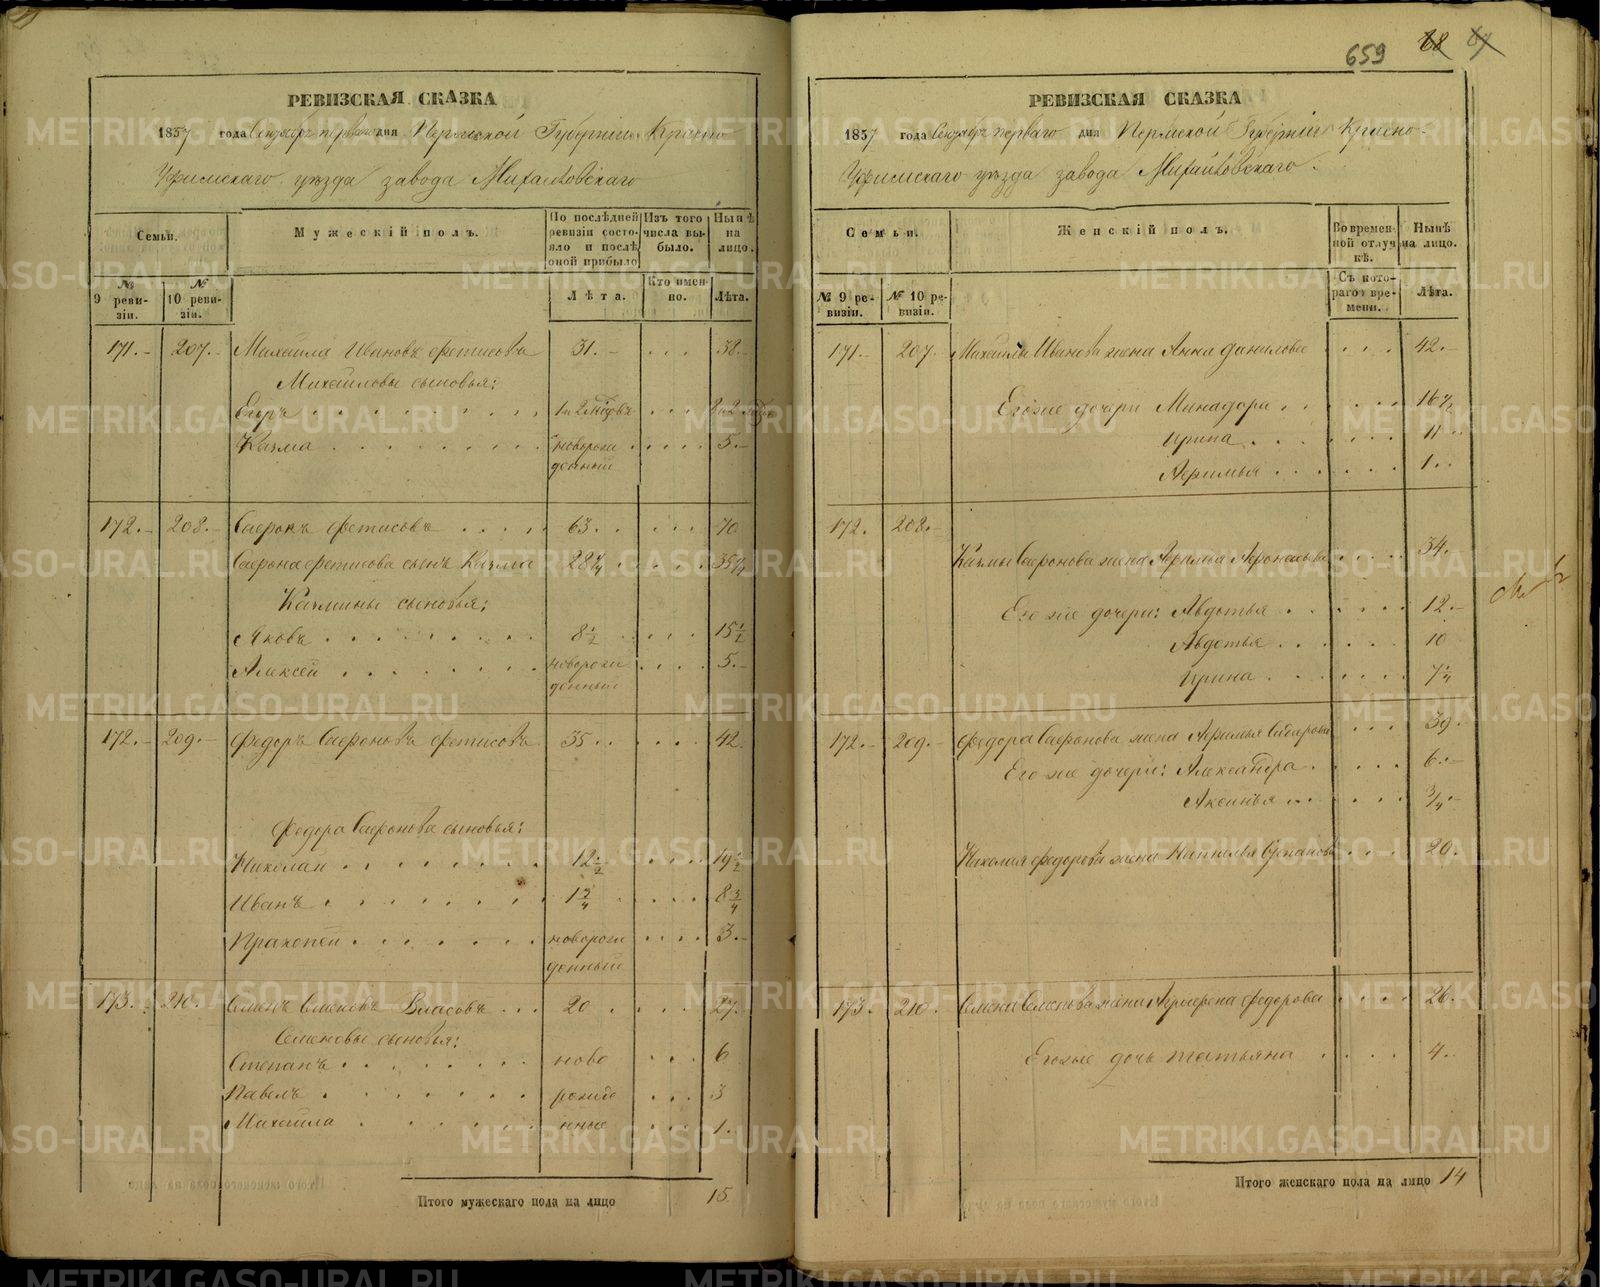 РЕВИЗСКАЯ СКАЗКА
1857 года Сентября перваго дня Пермской Губернии Красно-
Уфимскаго уѣзда завода Михайловскаго
Семьи.
Мужескій полъ.
По послѣдней ревизіи состояло и послѣ оной прибыло
Изъ того числа выбыло.
Нынѣ на лицо.
№ 9 ревизіи.
№ 10 ревизіи.
Лѣта.
Кто именно.
Лѣта.
171. 207. Михайла Ивановъ Фетисовъ 31. 38.
Михайловы сыновья:
Егоръ
Казма новорожденный 5.
172. 208. Сафронъ Фетисовъ 63. 70
Сафрона Фетисова сынъ Казма 28 1/4 35 1/4
Казмины сыновья:
Яковъ 8 1/2 15 1/2
Алексей новорожденный 5.
172. 209. Федоръ Сафроновъ Фетисовъ 35. 42.
Федора Сафронова сыновья:
Николай 12 1/2 19 1/2
Иванъ 1 3/4 8 3/4
Пракопей новорожденный 3.
173. 210. Семенъ Семеновъ Власовъ 20 27.
Семеновы сыновья:
Степанъ ново 6
Павелъ рожде 3
Михайла нные 1.
Итого мужескаго пола на лицо 15
659 68 67
РЕВИЗСКАЯ СКАЗКА
1857 года Сентября перваго дня Пермской Губерніи Красно-
Уфимскаго уѣзда завода Михайловскаго.
Семьи.
Женскій полъ.
Во временной отлучкѣ.
Нынѣ на лицо.
№ 9 ревизіи.
№ 10 ревизіи.
Съ котораго времени.
Лѣта.
171. 207. Михайлы Иванова жена Анна Данилова 42.
Его же дочери Минадора 16 1/2
Ирина 11
Афимья 1.
172. 208.
Казмы Сафронова жена Афимья 34.
Его же дочери: Авдотья 12.
Авдотья 10
Ирина 7 1/4
172. 209. Федора Сафронова жена Афимья 39.
Его же дочери: Александра 6.
Аксинья 3/4
Николая Федорова жена Наталья 20.
173. 210. Семена Семенова жена Федорова 26.
Его же дочь Татьяна 4.
Итого женскаго пола на лицо 14
METRIKI.GASO-URAL.RU